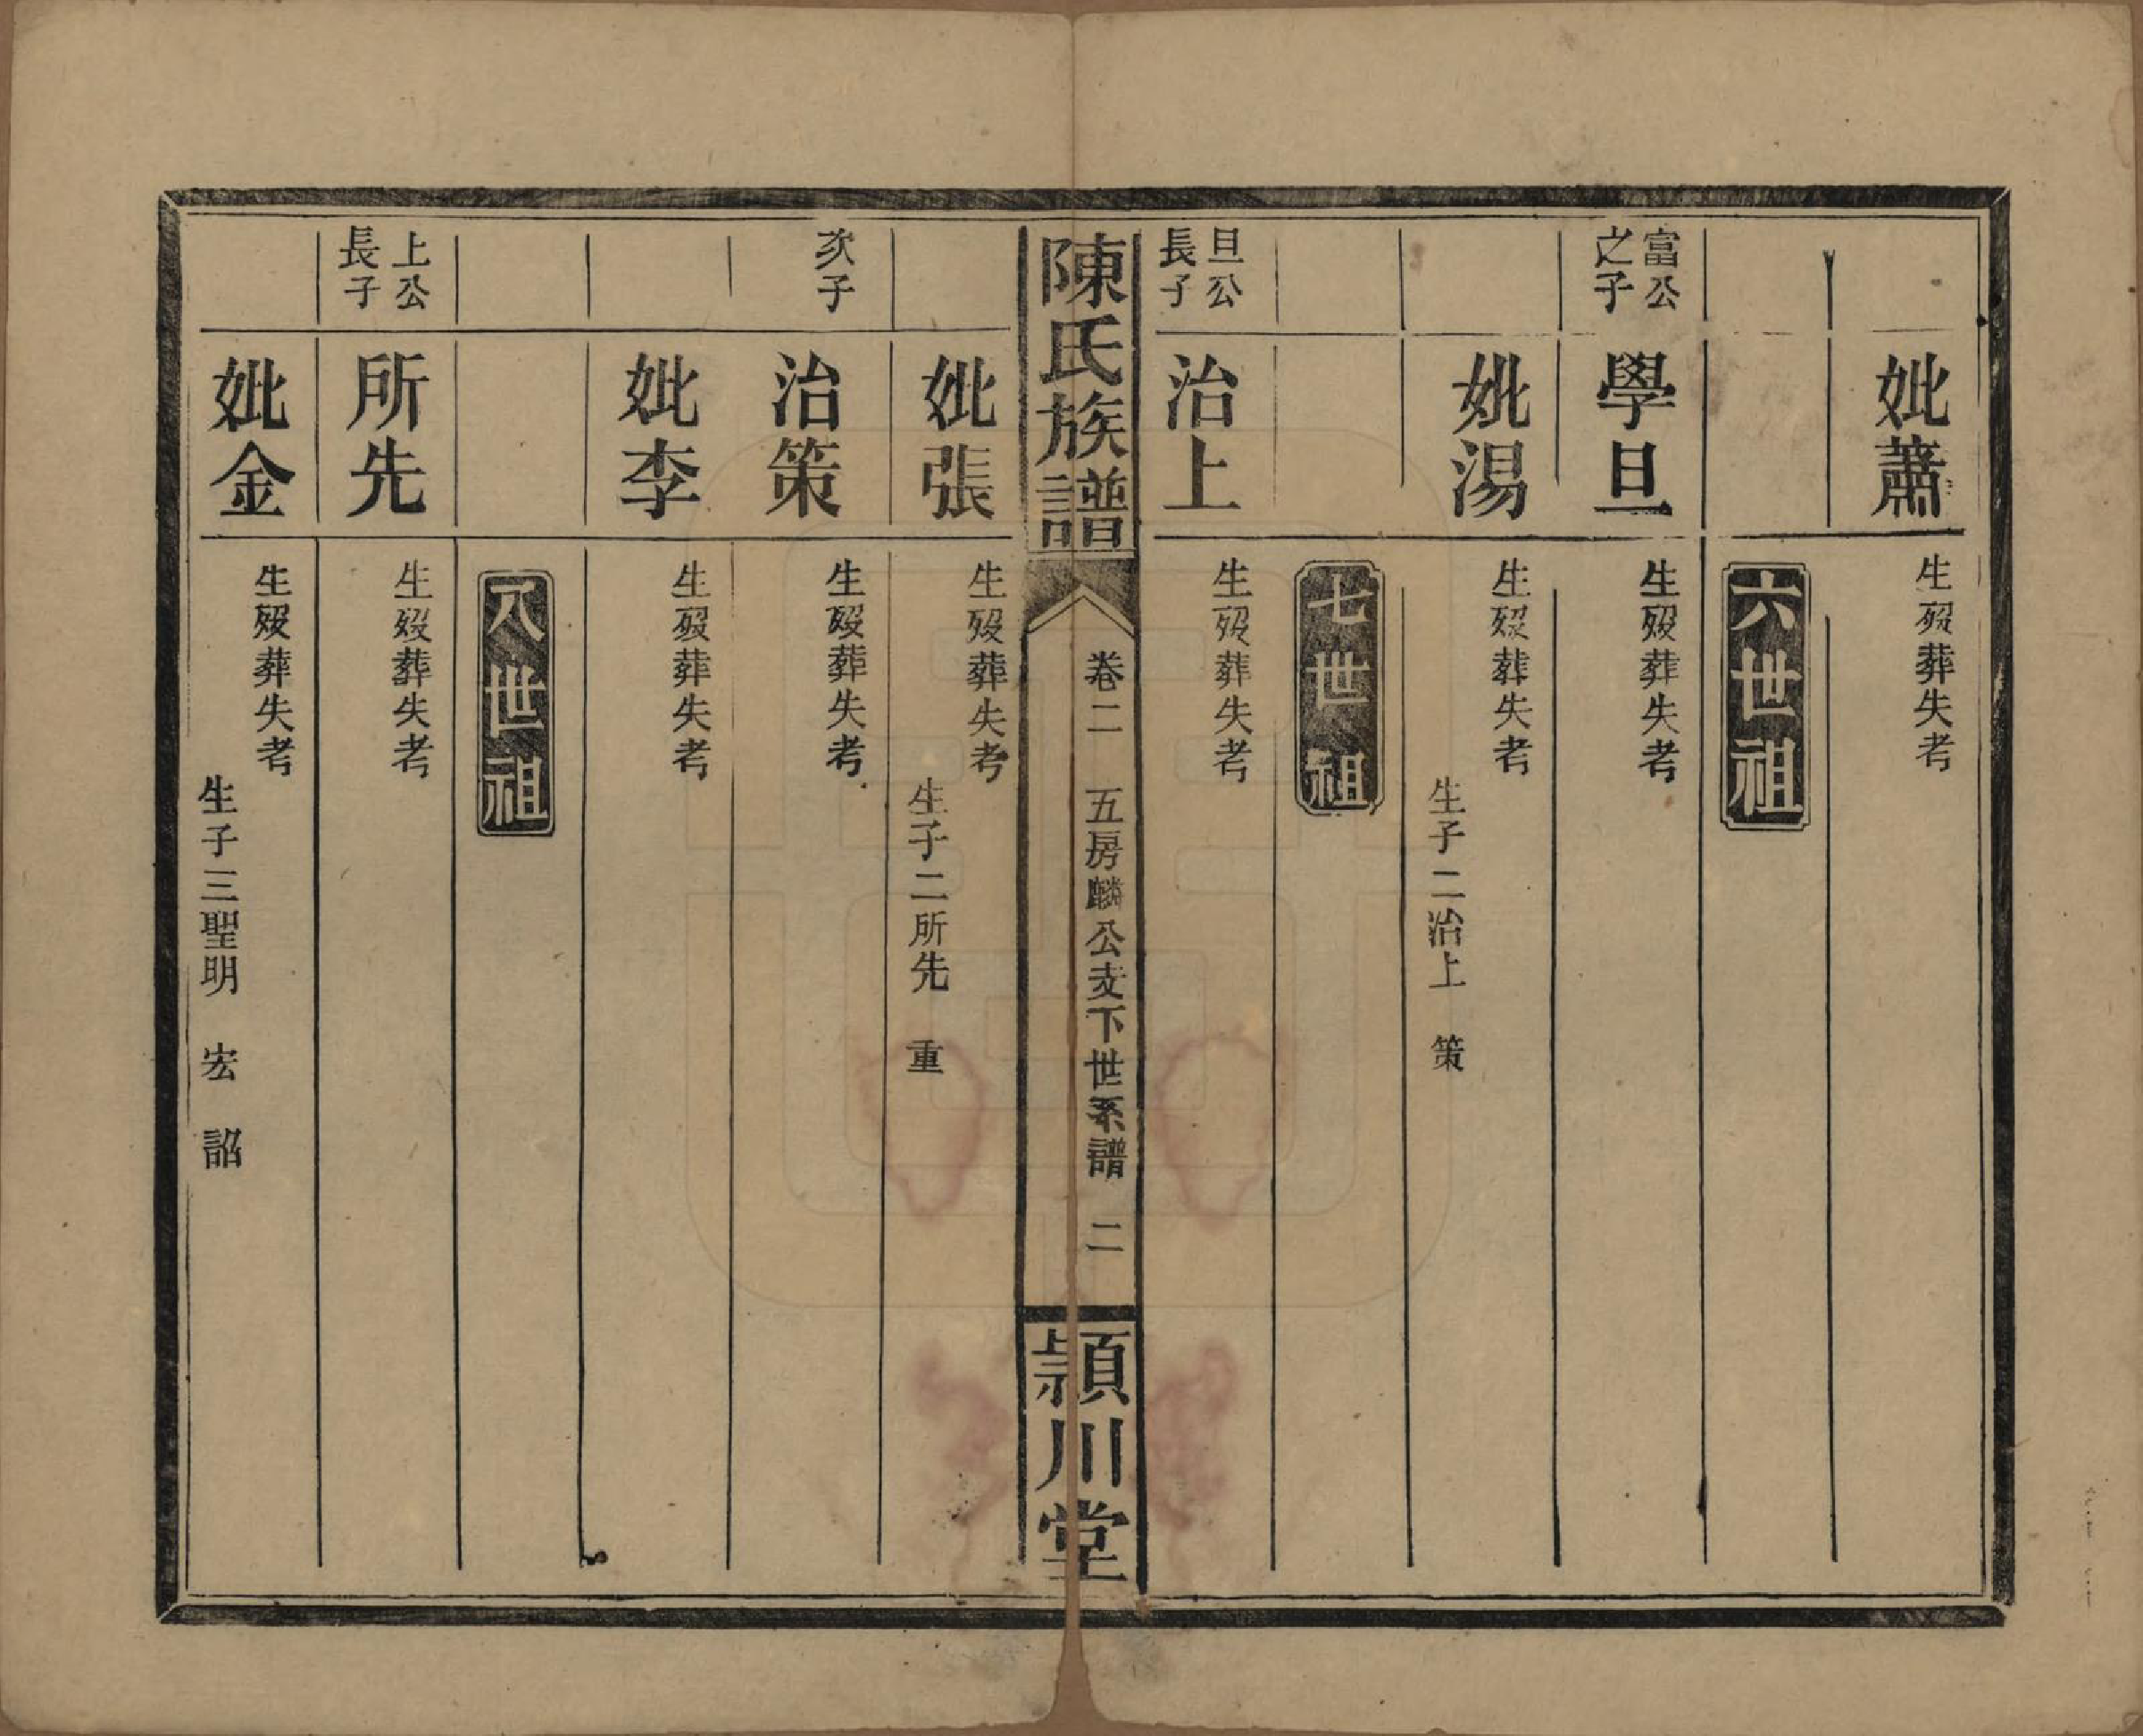 妣蕭
生殁葬失考
六世祖
富公
之子
學旦
生殁葬失考
妣湯
生殁葬失考
生子二治上 策
七世祖
旦公
長子
治上
生殁葬失考
陳氏族譜
卷二 五房麟公支下世系譜 二
潁川堂
妣張
生殁葬失考
生子二所先 重
次子
治策
生殁葬失考
妣李
生殁葬失考
八世祖
上公
長子
所先
生殁葬失考
妣金
生殁葬失考
生子三聖明 宏 詔